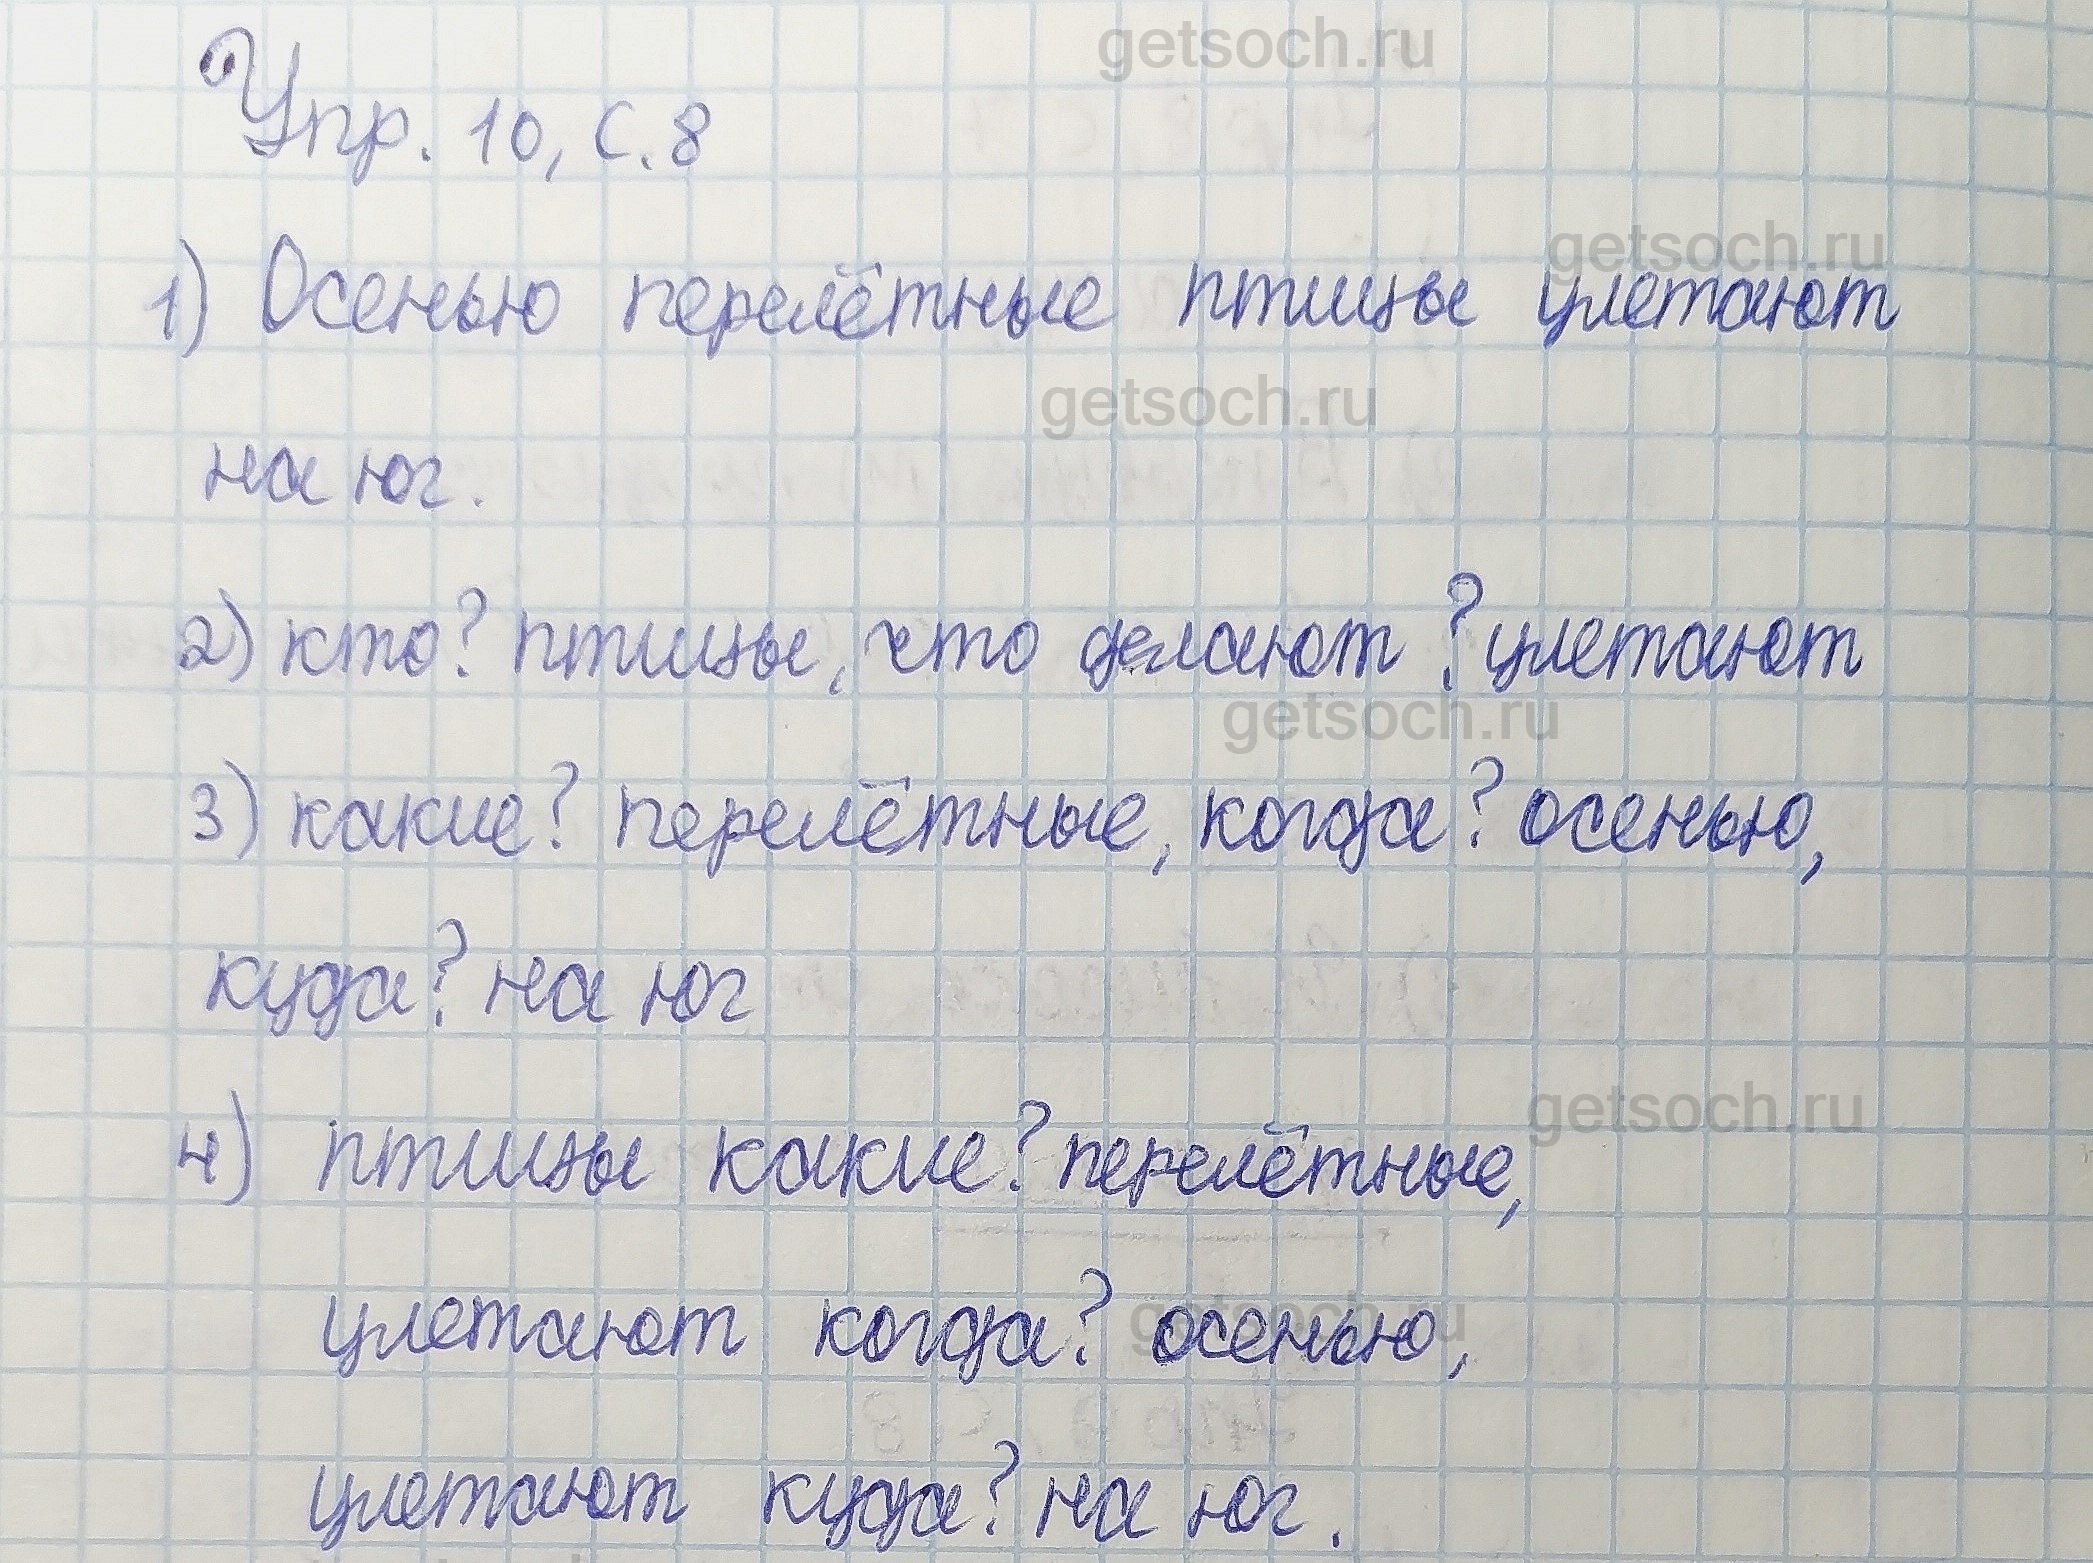 getsoch.ru
Упр. 10, с. 8
getsoch.ru
1) Осенью перелётные птицы улетают
getsoch.ru
на юг.
2) кто? птицы, что делают? улетают
getsoch.ru
3) какие? перелётные, когда? осенью,
куда? на юг
getsoch.ru
4) птицы какие? перелётные,
getsoch.ru
улетают когда? осенью,
улетают куда? на юг.